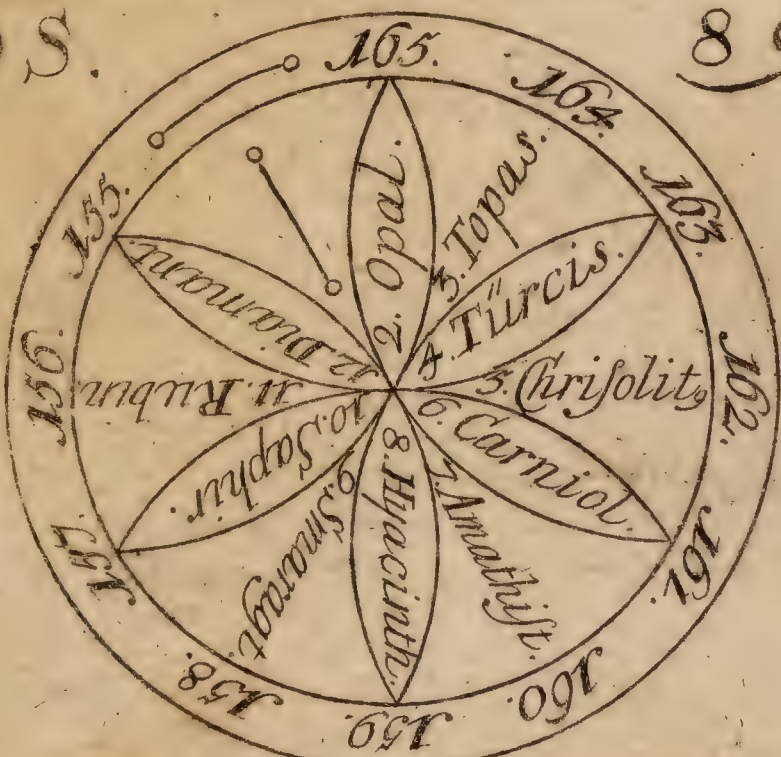 S.
8
165.
164.
163.
162.
161.
160.
159.
158.
157.
156.
155.
2. Opal.
3. Topas.
4. Türcis.
5. Chriſolit9
6. Carniol.
7. Amathiſt.
8. Hyacinth.
9. Smaragt.
10. Saphir.
11. Rubin.
12. Diamant.